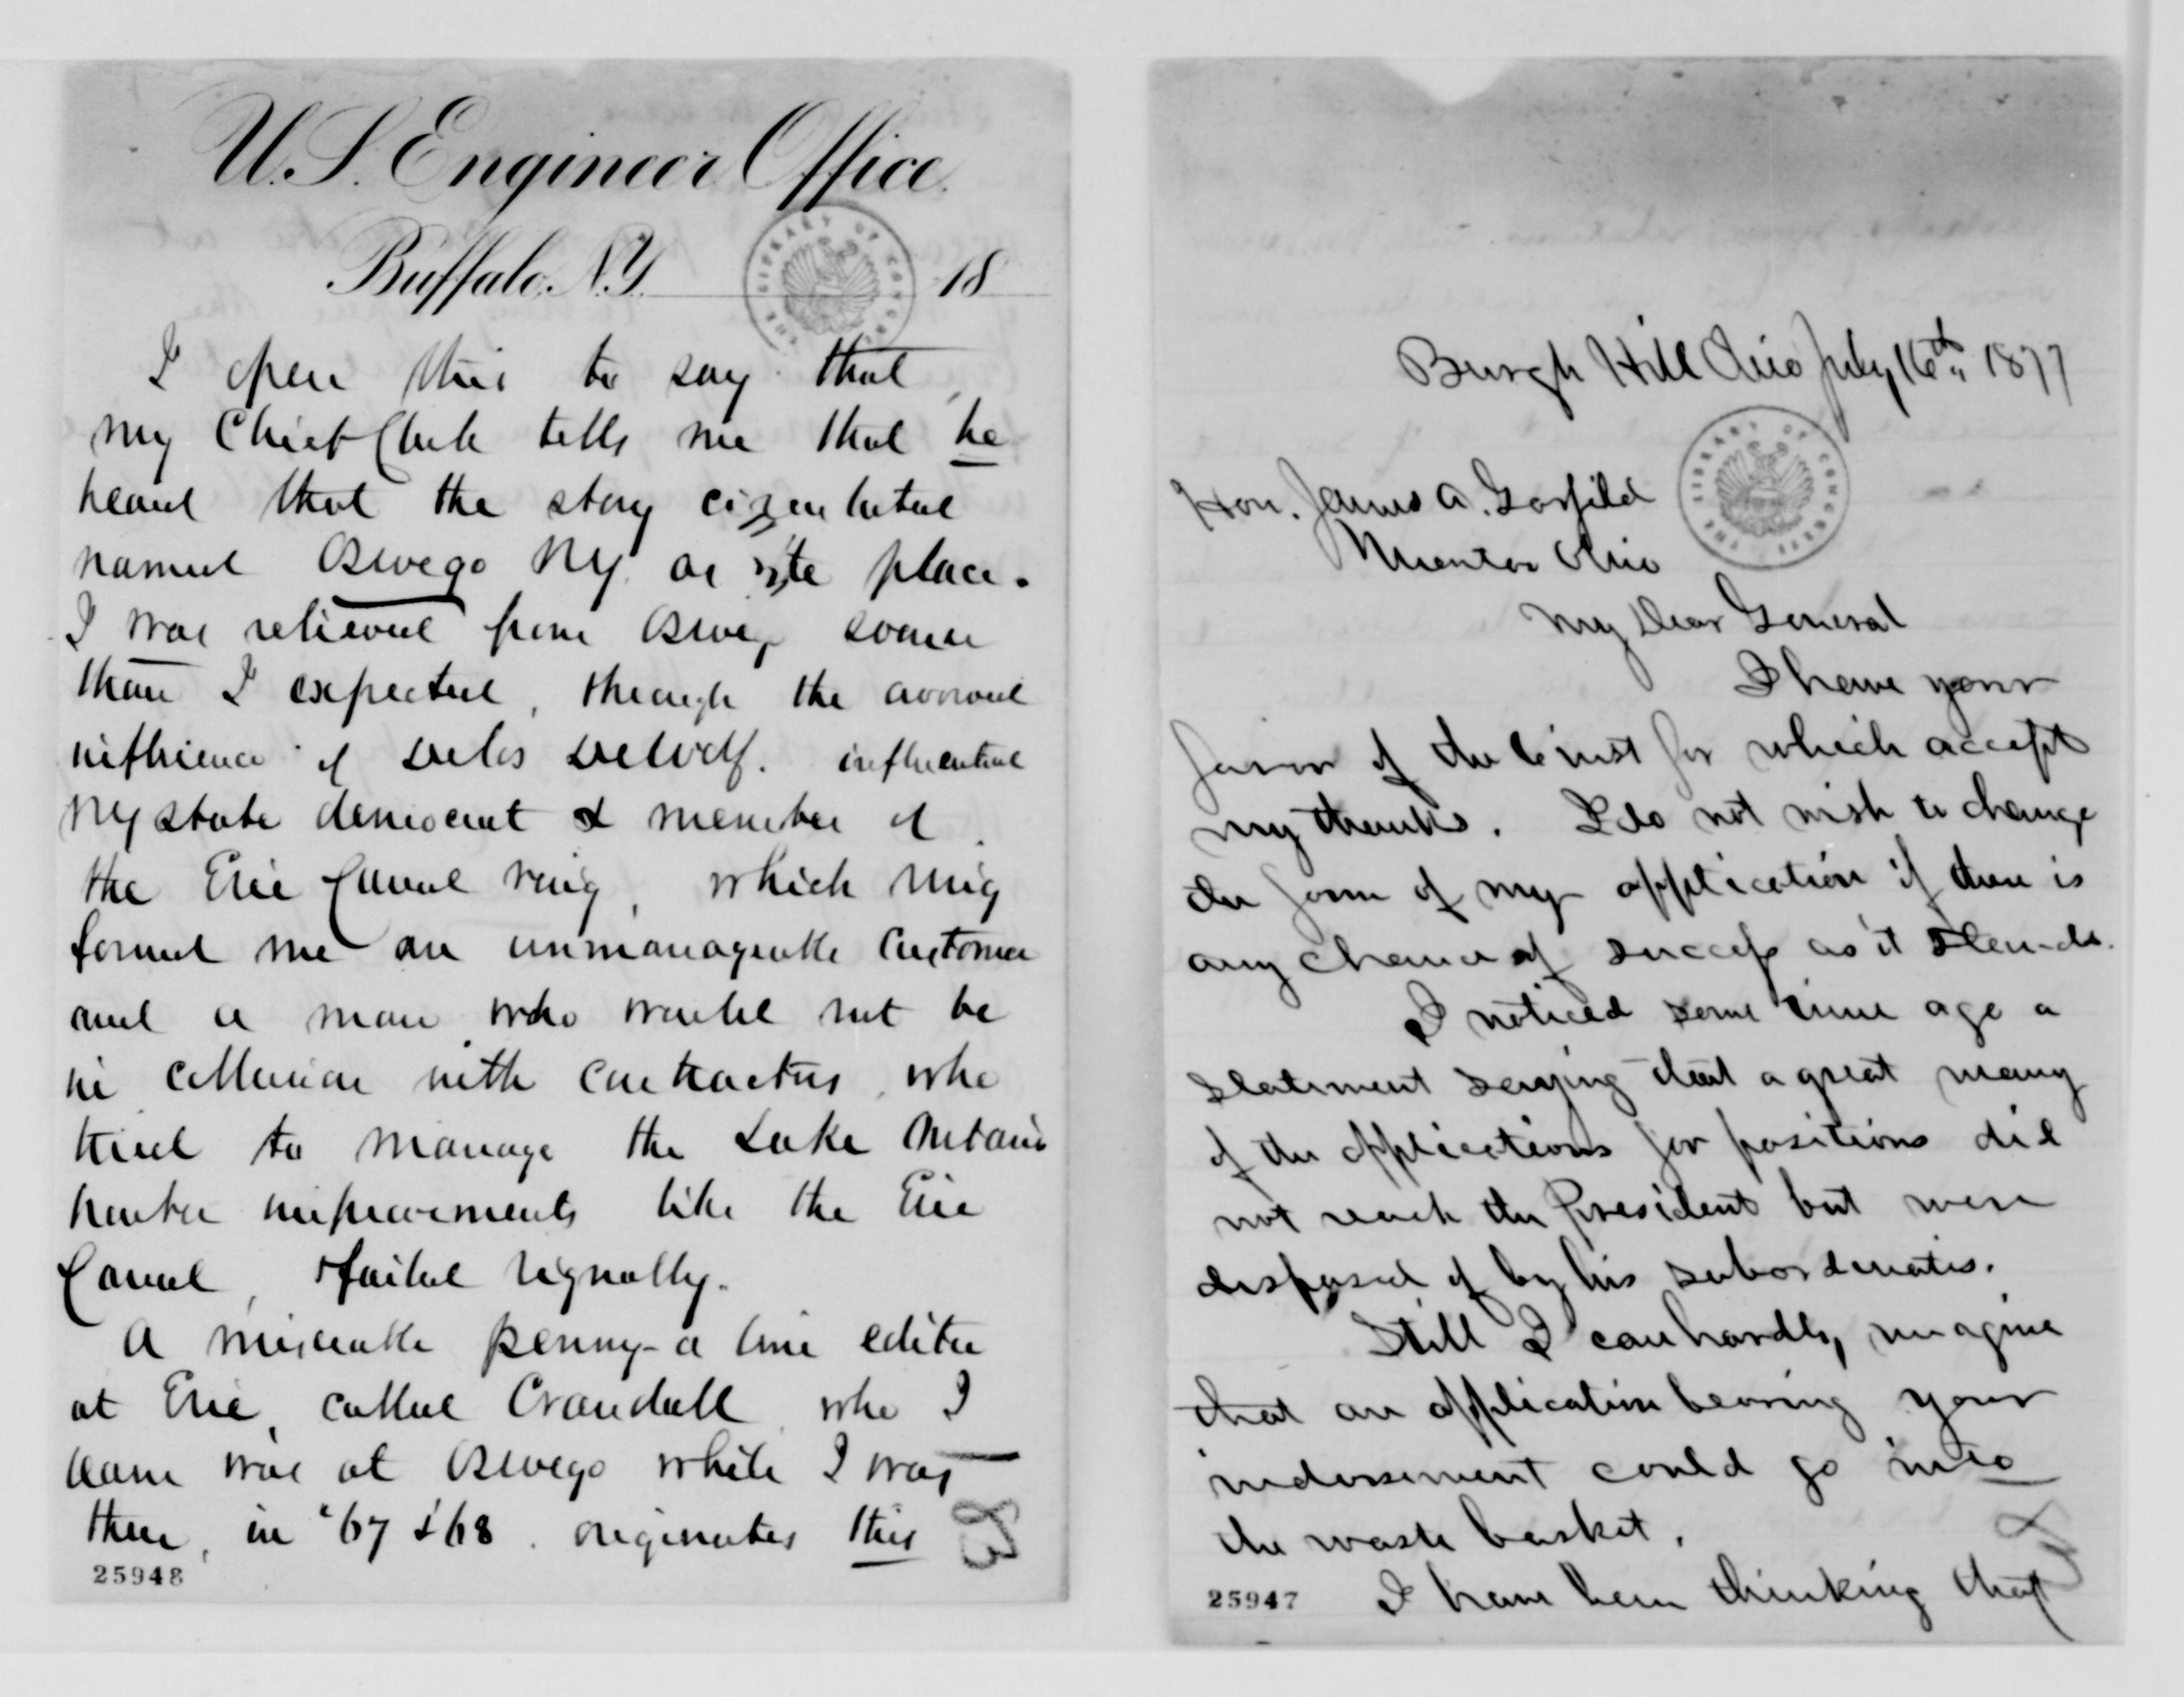 U.S. Engineer Office.
Buffalo, N.Y. 18
I open this to say that
my Chief Clerk tells me that he
heard that the story circulated
named Oswego NY. as its place.
I was relieved from Oswego sooner
than I expected, through the avowed
influence of Delos DeWolf. influential
NY state democrat & member of
the Erie Canal ring, which ring
found me an unmanageable customer
and a man who would not be
in collusion with contractors, who
tried to manage the Lake Ontario
harbor improvements like the Erie
Canal, & failed signally.
A miserable penny-a line editor
at Erie, called Crandall who I
learn was at Oswego while I was
there, in '67 & '68. originates this
25948
THE LIBRARY OF CONGRESS
Burgh Hill Ohio July 16th 1877
Hon. James A. Garfield
Mentor Ohio
My Dear General
I have your
favor of the inst for which accept
my thanks. I do not wish to change
the form of my application if there is
any chance of success as it stands.
I noticed some time ago a
statement saying that a great many
of the applications for positions did
not reach the President but were
disposed of by his subordinates.
Still I can hardly imagine
that an application bearing your
indorsement could go into
the waste basket.
25947 I have been thinking that
THE LIBRARY OF CONGRESS